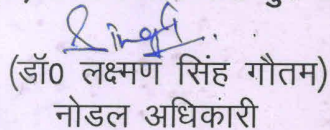 (डॉ0 लक्ष्मण सिंह गौतम)
नोडल अधिकारी